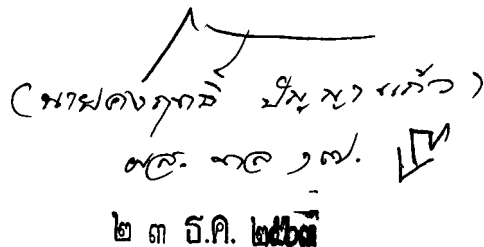 (นายคงฤทธิ์ ปัญญาแก้ว)
ผส. ทล ๑๗.
๒๓ ธ.ค. ๒๕๖๓